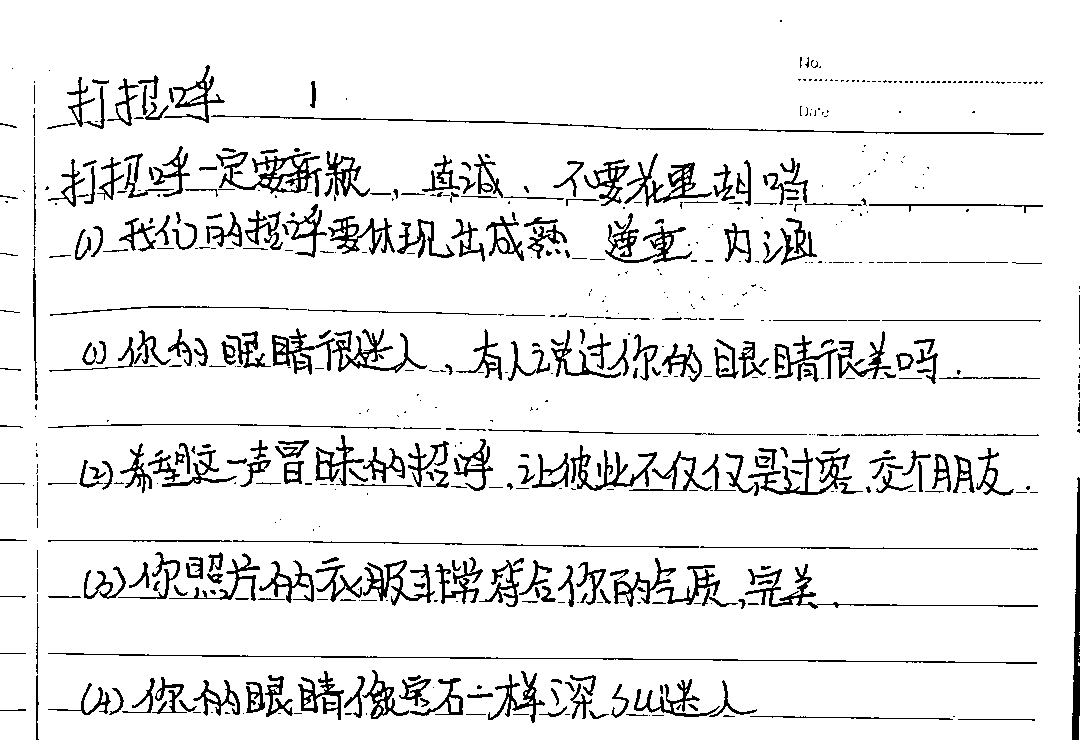 No.
打招呼 1
Date
打招呼一定要新颖，真诚、不要花里胡哨，
(1) 我们的招呼要体现出成熟 尊重 内涵
(1) 你的眼睛很迷人，有人说过你的眼睛很美吗.
(2) 希望这一声冒昧的招呼，让彼此不仅仅是过客，交个朋友.
(3) 你照片的衣服非常符合你的气质，完美.
(4) 你的眼睛像宝石一样深 迷人